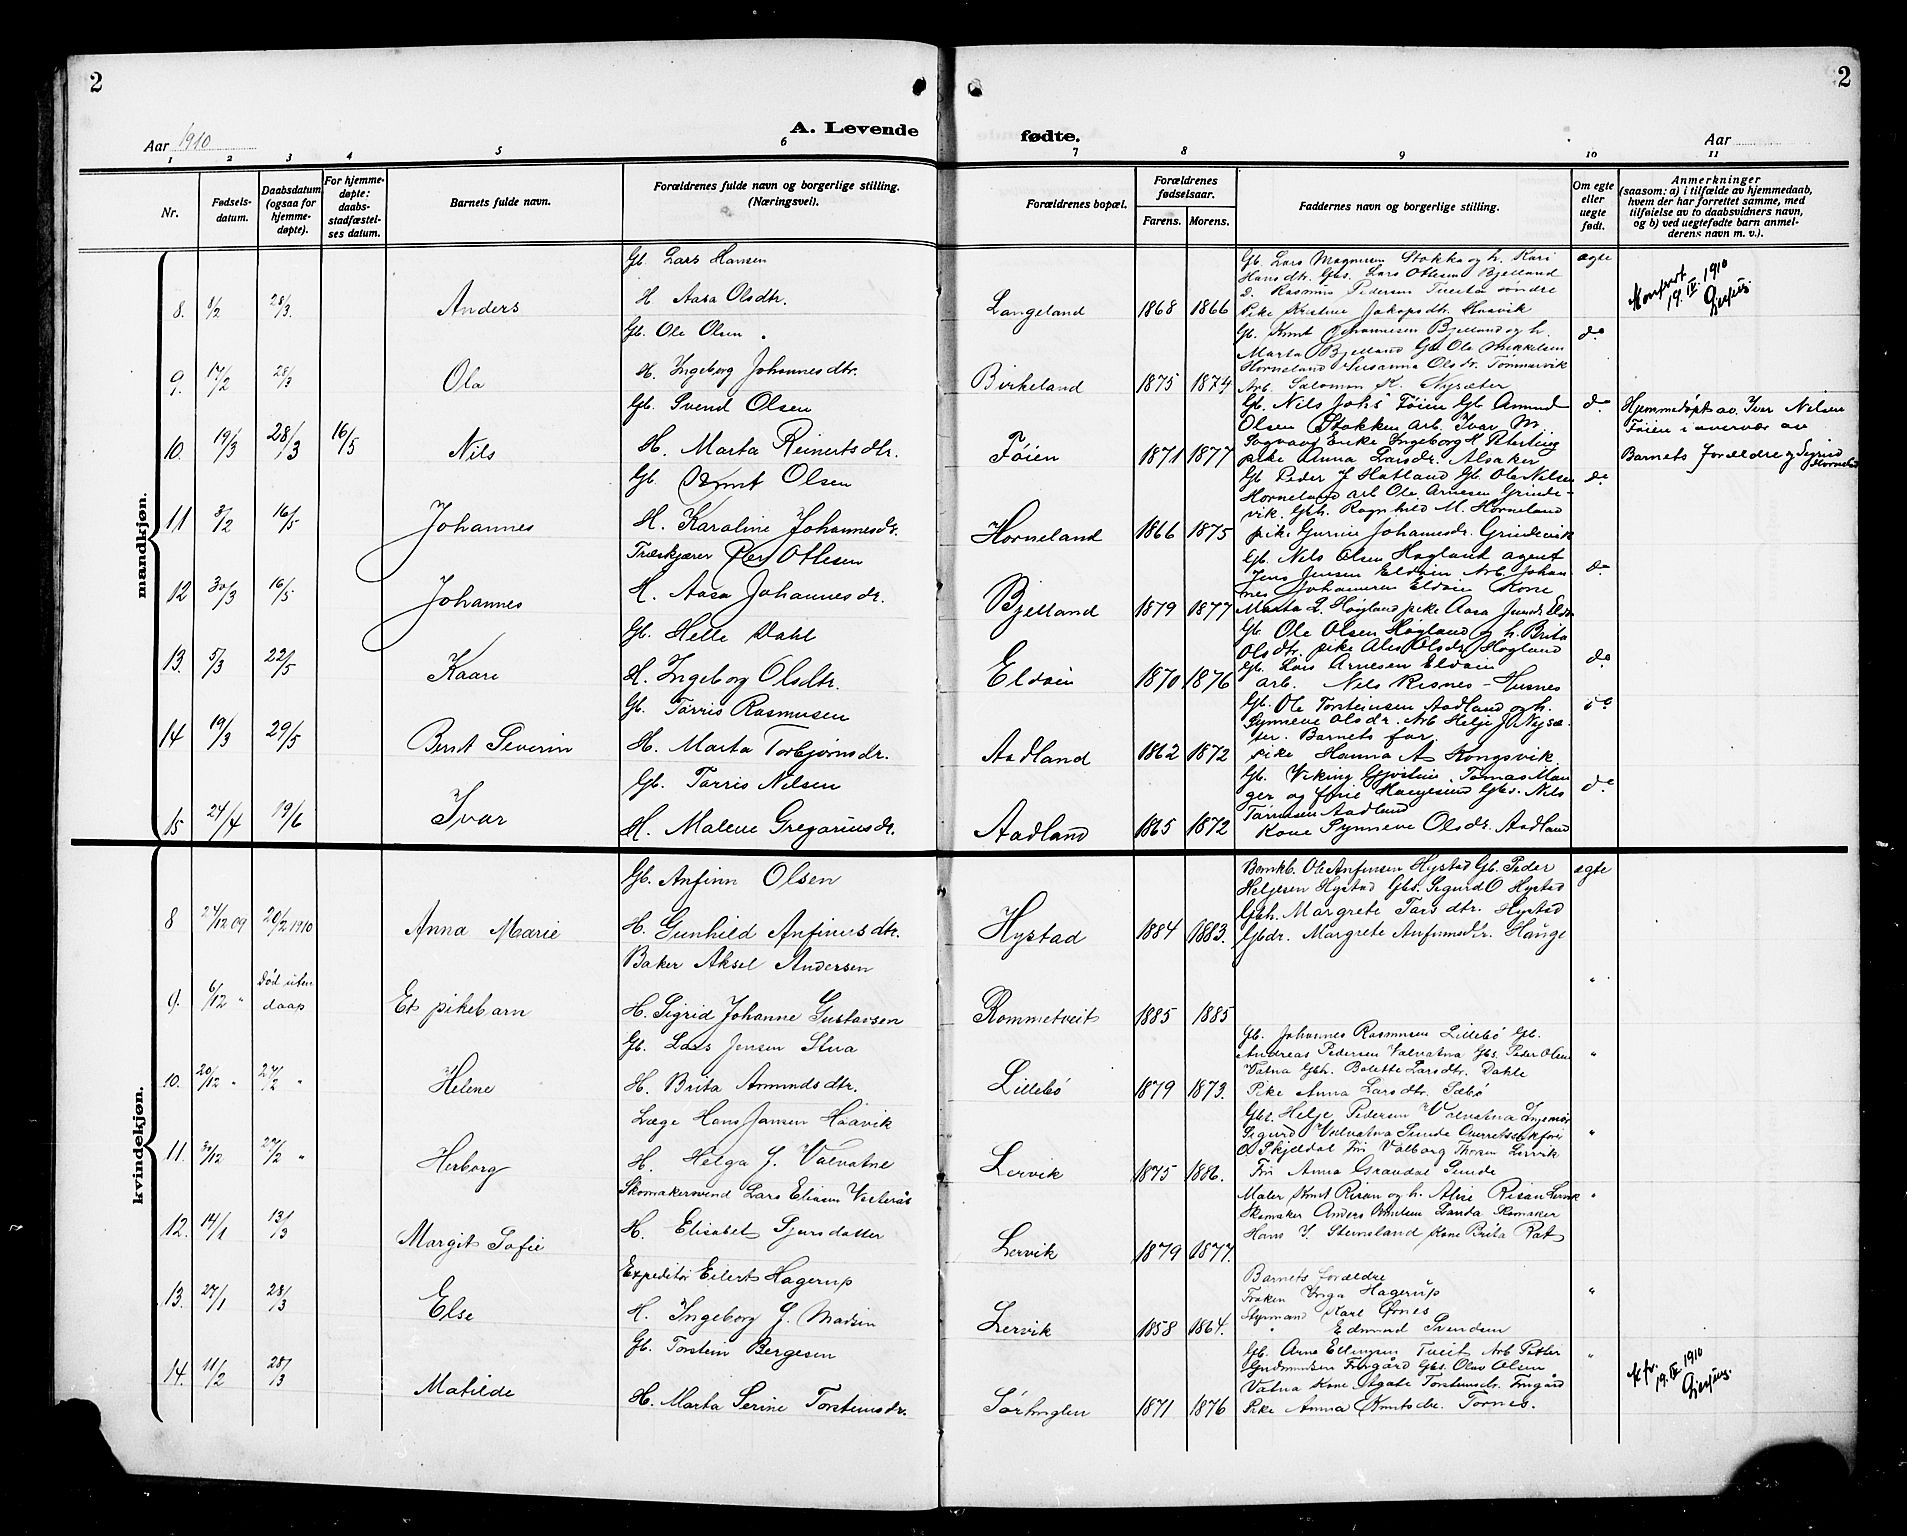 2
2
A. Levende
fødte.
Aar 1910
Aar
1 2 3 4 5 6 7 8 9 10 11
Nr.
Fødsels-
datum.
Daabsdatum
(ogsaa for
hjemme-
døpte).
For hjemme-
døpte:
daabs-
stadfæstel-
ses datum.
Barnets fulde navn.
Forældrenes fulde navn og borgerlige stilling.
(Næringsvei).
Forældrenes bopæl.
Forældrenes
fødselsaar.
Farens. Morens.
Faddernes navn og borgerlige stilling.
Om egte
eller
uegte
født.
Anmerkninger
(saasom: a) i tilfælde av hjemmedaab,
hvem der har forrettet samme, med
tilføielse av to daabsvidners navn,
og b) ved uegtefødte barn anmel-
derens navn m. v.).
mandkjøn.
8. 8/2 28/3. Anders
Gb. Lars Hansen
H. Aasa Olsdtr.
Langeland 1868 1866
Gb. Lars Magnusen Stokka og h. Kari
Hansdtr. Gbs. Lars Ottesen Bjelland
Rasmus Pedersen søndre
Pike Kristine Jakopsdtr. Haavik
ægte
19. IV. 1910
9. 17/2 28/3 Ola
Gb. Ole Olsen
H. Ingeborg Johannesdtr.
Birkeland 1875 1874
Gb. Knut Johannesen Bjelland og h.
Marta Bjelland Gb. Ole Mikkelsen
Horneland Susanna Olsdr. Tømmervik
Arb. Salomon K. Nysæter
do
10. 19/3 28/3 16/5 Nils
Gb. Svend Olsen
H. Marta Reinertsdtr.
Føien 1871 1877
Gb. Nils Johs Føien Gb. Amund
Olsen Stokken Arb. Ivar M.
Enke Ingeborg H.
pike Anna Larsdr. Alsaker
do
Hjemmedøpt av Iver Nilsen
Føien i overvær av
Barnets forældre og Sigrid
Horneland
11 3/2 16/5 Johannes
Gb. Knut Olsen
H. Karoline Johannesdr.
Horneland 1866 1875
Gb. Peder J. Hatland Gb. Ole Nilsen
Horneland arb. Ole Arnesen Grinde-
vik. Gbh. Ragnhild M. Horneland
pike Gurine Johannesdr. Grindevik
do
12 30/3 16/5 Johannes
Træskjærer Per Ottesen
H. Aasa Johannesdr.
Bjelland 1879 1877
Gb. Nils Olsen Høgland agent
Jens Jensen Eldøin Arb. Johan
nes Johannesen Eldøin Kone
Marta L. Høgland pike Aasa
do
13. 5/3 22/5 Kaare
Gb. Helle Dahl
H. Ingeborg Olsdtr.
Eldøin 1870 1876
Gb. Ole Olsen Høgland og h. Brita
Olsdtr. pike Olsdr Høgland
Gb. Lars Arnesen Eldøin
arb. Nils Risnes - Husnes
do
14 19/3 29/5 Bernt Severin
Gb. Tørris Rasmusen
H. Marta Torbjørnsdr.
Aadland 1862 1872
Gb. Ole Torsteinsen Aadland og h.
Synneve Olsdr. Arb. Helje J. Nysæ-
ter. Barnets far.
pike Hanna A Kongsvik
do
15 24/4 19/6 Ivar
Gb. Tørris Nilsen
H. Malene Gregoriusdr.
Aadland 1865 1872
Gb. Viking Gjøstein. Tomas Man
ger og Haugesund Gbs. Nils
Tørrisen Aadland
Kone Synneve Olsdr. Aadland
do
kvindekjøn.
8 27/12 09 20/2 1910 Anna Marie
Gb. Anfinn Olsen
H. Gunhild Anfinnsdtr.
Hystad 1884 1883.
Bomkb. Ole Anfinsen Hystad Gb. Peder
Heljesen Hystad Gbs. Sigurd O Hystad
Gbh. Margrete Larsdtr. Hystad
Gbdr. Margrete Anfinnsdtr. Hauge
ægte
9. 6/12 " Død uten
daap Et pikebarn
Baker Aksel Andersen
H. Sigrid Johanne Gustavsen
Rommetveit 1885 1885
"
10. 20/12 " 27/2 " Helene
Gb. Lars Jensen Stua
H. Brita Amundsdtr.
Lillebø 1879 1873.
Gb. Johannes Rasmusen Lillebø Gb.
Andreas Pedersen Valvatna Gbs. Peder Olsen
Vatna Gbh. Bolette Larsdtr. Dahle
Pike Anna Larsdtr. Sæbø
"
11. 30/12 27/2 " Herborg
Læge Hans Jansen Haavik
H. Helga J. Valvatne
Lervik 1875 1886.
Gbs. Helje Pedersen Valvatna Ingeniør
Sigurd Valvatna Sunde Overretssakfører
O Skjeldal Fru Valborg Thorsen Lervik
Fru Anna Grandal Sunde
"
12. 14/1 13/3 Margit Sofie
Skomakersvend Lars Eliasen Vesterås
H. Elisabet Sjursdatter
Lervik 1879 1877.
Maler Knut Risan og h. Alise Risan Lervik
Skomaker Anders Landa Skomaker
Hans J. Steinsland Kone Brita Rat
"
13. 27/1 28/3 Else
Expeditør Eilert Hagerup
H. Ingeborg J. Madsen
Lervik 1858 1864.
Barnets forældre
Frøken Inga Hagerup
Styrmand Karl Ørnes
" Edmund Svendsen
"
14. 11/2 28/3 Matilde
Gb. Torstein Bergesen
H. Marta Serine Torsteinsdr.
Sørhuglen 1871 1876
Gb. Arne Ellingsen Tveit Arb. Petter
Gudmundsen Gbs. Olav Olsen
Vatna Kone Agate Torsteinsdr.
Pike Anna Knutsdtr. Tornes.
"
19. IV. 1910